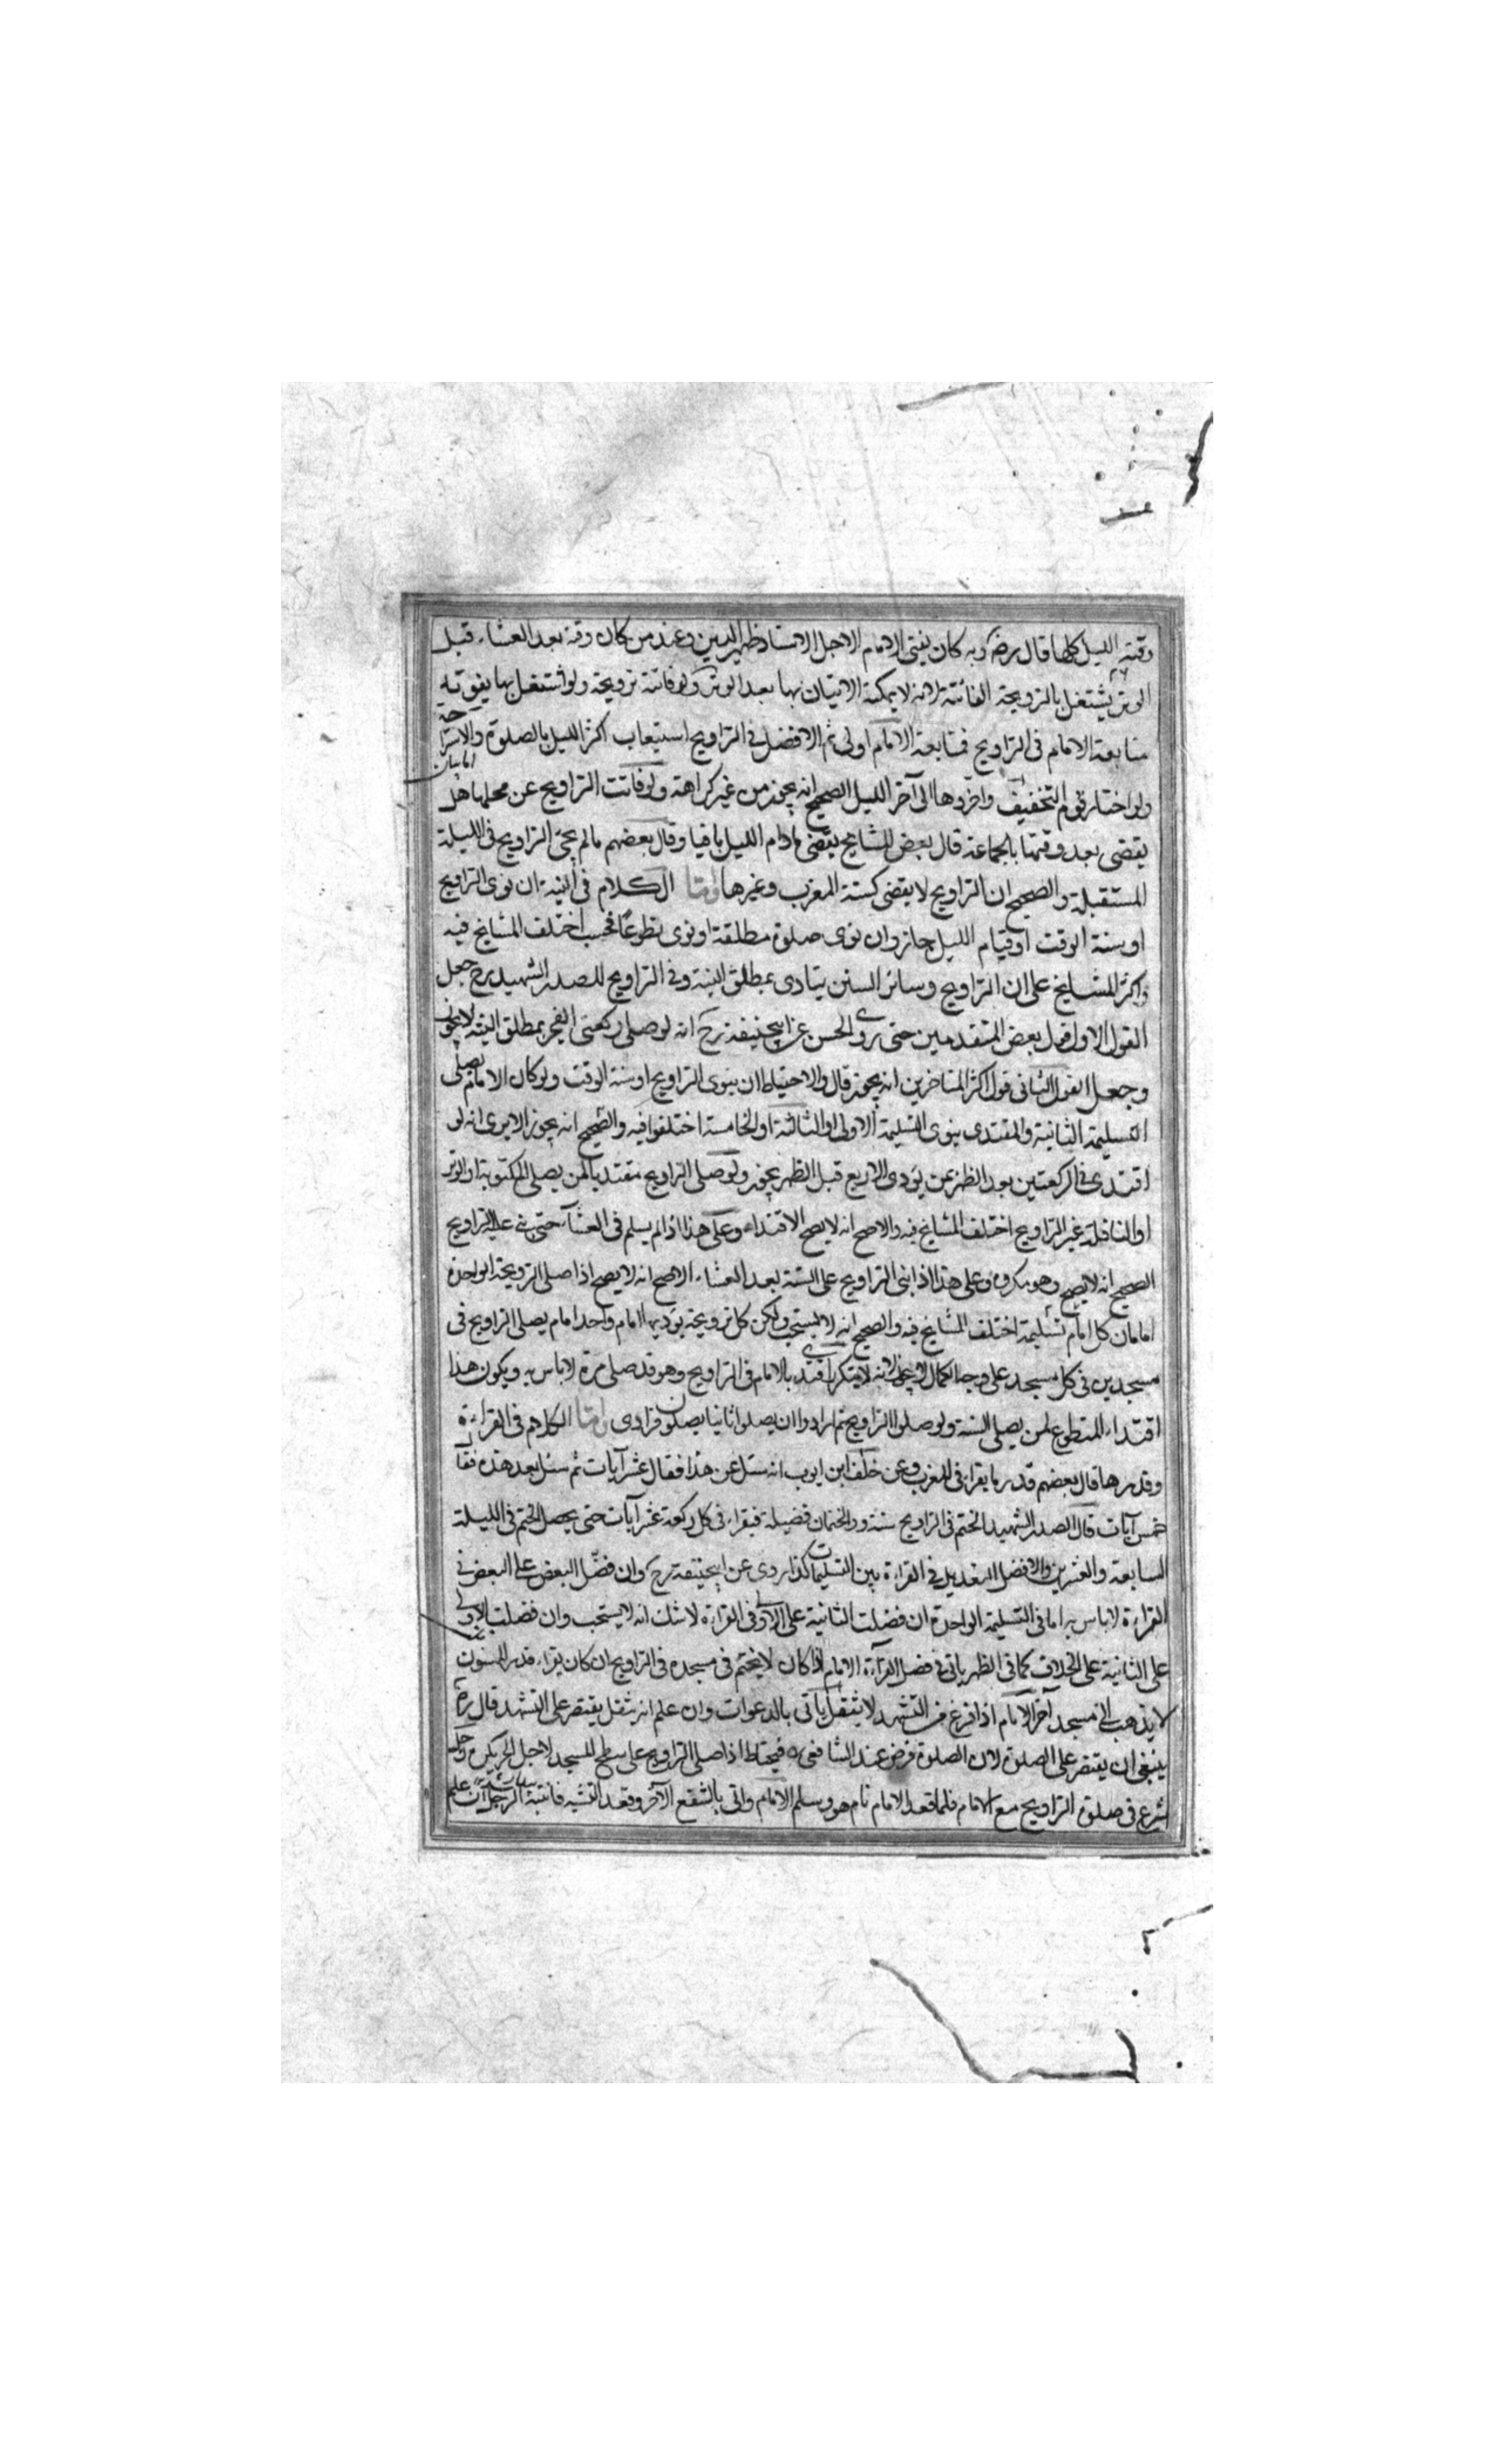 وقته الليل كلها قال رضه وبه كان يفتى الامام الاجل الاستاذ ظهير الدين وعند من كان وقته بعد العشاء قبل
الوتر يشتغل بالترويحة الفائتة لانه لا يمكنه الاتيان بها بعد الوتر ولو فاتته ترويحة ولو اشتغل بها يفوته
متابعة الامام فى التراويح فمتابعة الامام اولى ثم الافضل فى التراويح استيعاب اكثر الليل بالصلوة والاستراحة
ولو اختار قوم التخفيف واخروها الى آخر الليل الصحيح انه يجوز من غير كراهة ولو فاتت التراويح عن محلها هل
يقضى بعد وقتها بالجماعة قال بعض المشايخ يقضى مادام الليل باقيا وقال بعضهم مالم يجئ التراويح فى الليلة
المستقبلة والصحيح ان التراويح لا يقضى كسنة المغرب وغيرها واما الكلام فى النية ان نوى التراويح
او سنة الوقت او قيام الليل جاز وان نوى صلوة مطلقة او نوى تطوعا فحسب اختلف المشايخ فيه
واكثر المشايخ على ان التراويح وسائر السنن يتادى بمطلق النية وفى التراويح للصدر الشهيد رح جعل
القول الاول قول بعض المتقدمين حتى روى الحسن عن ابيحنيفة رح انه لو صلى ركعتى الفجر بمطلق النية لا يجوز
وجعل القول الثانى قول اكثر المتاخرين انه يجوز قال والاحتياط ان ينوى التراويح او سنة الوقت ولو كان الامام يصلى
التسليمة الثانية والمقتدى ينوى التسليمة الاولى او الثالثة او الخامسة اختلفوا فيه والصحيح انه يجوز الا يرى انه لو
اقتدى فى الركعتين بعد الظهر بمن يؤدى الاربع قبل الظهر يجوز ولو صلى التراويح مقتديا بمن يصلى المكتوبة او الوتر
او النافلة غير التراويح اختلف المشايخ فيه والاصح انه لا يصح الاقتداء وعلى هذا اذا لم يسلم فى العشآء حتى بنى عليه التراويح
الصحيح انه لا يصح وهو مكروه وعلى هذا اذا بنى التراويح على السنة بعد العشاء الاصح انه لا يصح اذا صلى الترويحة الواحدة
امامان كل امام تسليمة اختلف المشايخ فيه والصحيح انه لا يستحب ولكن كل ترويحة يؤديها امام واحد امام يصلى التراويح فى
مسجدين فى كل مسجد على وجه الكمال لا يجوز لانه لا يتكرر اقتدى بالامام فى التراويح وهو قد صلى مرة لا باس به ويكون هذا
اقتداء المتطوع لمن يصلى السنة ولو صلوا التراويح ثم ارادوا ان يصلوا ثانيا يصلون فرادى واما الكلام فى القراءة
وقدرها قال بعضهم قدر ما يقرا فى المغرب وعن خلف ابن ايوب انه سئل عن هذا فقال عشر آيات ثم سئل بعد هذه فقال
خمس آيات قال الصدر الشهيد الختم فى التراويح سنة والختمان فضيلة فيقراء فى كل ركعة عشر آيات حتى يحصل الختم فى الليلة
السابعة والعشرين والافضل التعديل فى القراءة بين التسليمات كذا روى عن ابيحنيفة رح وان فضل البعض على البعض فى
القراءة لا باس به اما فى التسليمة الواحدة ان فضلت الثانية على الاولى فى القراءة لا شك انه لا يستحب وان فضلت الاولى
على الثانية على الخلاف كما فى الظهر ياتى فى فضل القرآءة الامام اذا كان لا يختم فى مسجده فى التراويح ان كان يقراء قدر المسنون
لا يذهب الى مسجد آخر الامام اذا فرغ من التشهد لا يثقل ياتى بالدعوات وان علم انه يثقل يقتصر على التشهد قال رضه
ينبغى ان يقتصر على الصلوة لان الصلوة فرض عند الشافعى فيحتاط اذا صلى التراويح على سطح المسجد لاجل الحر يكره رجل
شرع فى صلوة التراويح مع الامام فلما قعد الامام نام هو وسلم الامام واتى بالشفع الآخر وقعد للتشهد فانتبه الرجل ان علم